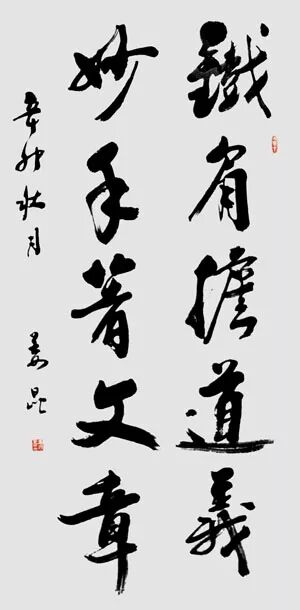 鐵肩擔道義
妙手著文章
辛卯秋月 姜昆